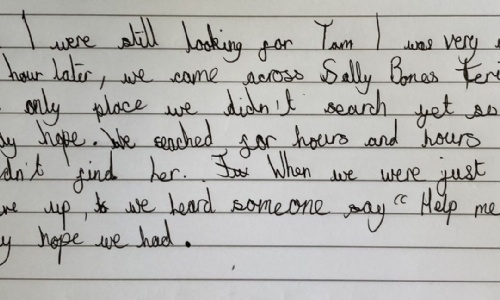 I were still looking for Tom I was very
hour later, we came across Sally Bones Teri
only place we didn't search yet so
hope. We seached for hours and hours
dn't find her. When we were just
up, we heard someone say "Help me
hope we had.